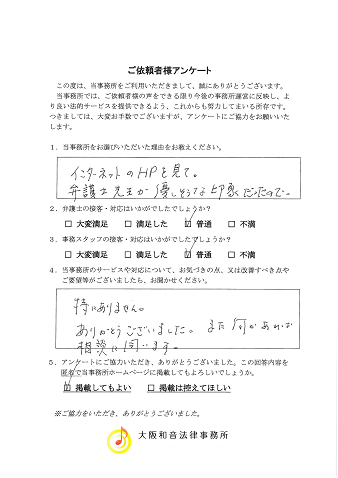 ご依頼者様アンケート
この度は、当事務所をご利用いただきまして、誠にありがとうございます。
当事務所では、ご依頼者様の声をできる限り今後の事務所運営に反映し、よ
り良い法的サービスを提供できるよう、これからも努力してまいる所存です。
つきましては、大変お手数でございますが、アンケートにご協力をお願いいた
します。
1．当事務所をお選びいただいた理由をお教えください。
インターネットのHPを見て。
弁護士先生が優しそうな印象だったので。
2．弁護士の接客・対応はいかがでしたでしょうか？
□ 大変満足 □ 満足した ☑ 普通 □ 不満
3．事務スタッフの接客・対応はいかがでしたでしょうか？
□ 大変満足 □ 満足した ☑ 普通 □ 不満
4．当事務所のサービスや対応について、お気づきの点、又は改善すべき点や
ご要望等がございましたら、お聞かせください。
特にありません。
ありがとうございました。また何かあれば
相談に伺います。
5．アンケートにご協力いただき、ありがとうございました。この回答内容を
匿名で当事務所ホームページに掲載してもよろしいでしょうか。
☑ 掲載してもよい □ 掲載は控えてほしい
※ご協力をいただき、ありがとうございました。
大阪和音法律事務所